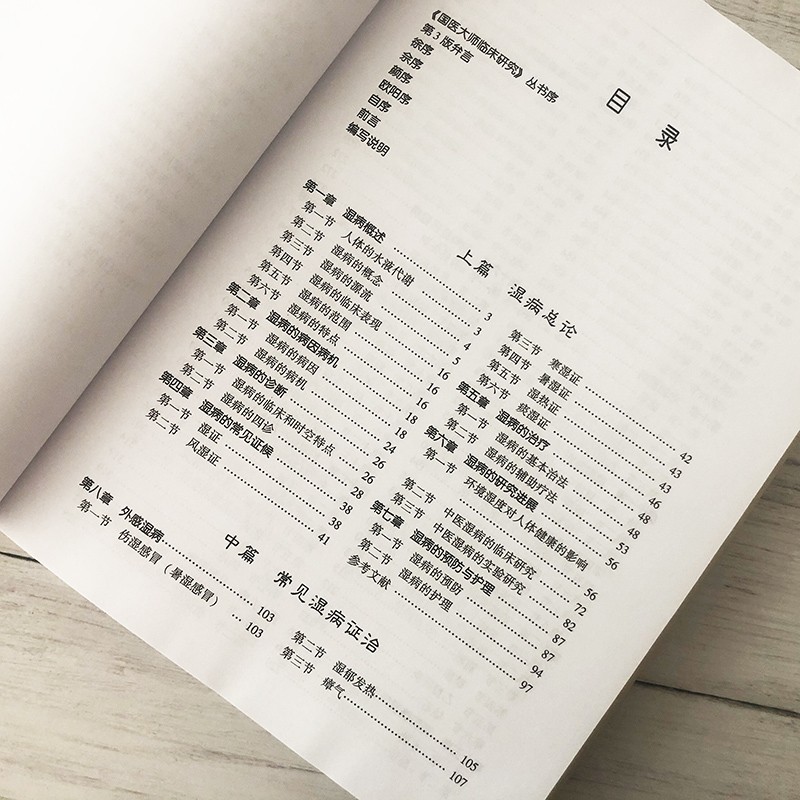 目录
《国医大师临床研究》丛书序
第3版弁言
徐序
余序
颜序
欧阳序
自序
前言
编写说明
上篇 湿病总论
第一章 湿病概述 …… 3
第一节 人体的水液代谢 …… 3
第二节 湿病的概念 …… 4
第三节 湿病的源流 …… 5
第四节 湿病的临床表现 …… 16
第五节 湿病的范围 …… 16
第六节 湿病的特点 …… 16
第二章 湿病的病因病机 …… 18
第一节 湿病的病因 …… 18
第二节 湿病的病机 …… 24
第三章 湿病的诊断 …… 26
第一节 湿病的临床和时空特点 …… 26
第二节 湿病的四诊 …… 28
第四章 湿病的常见证候 …… 38
第一节 湿证 …… 38
第二节 风湿证 …… 41
第三节 寒湿证 …… 42
第四节 暑湿证 …… 43
第五节 湿热证 …… 43
第六节 痰湿证 …… 46
第五章 湿病的治疗 …… 48
第一节 湿病的基本治法 …… 48
第二节 湿病的辅助疗法 …… 53
第六章 湿病的研究进展 …… 56
第一节 环境湿度对人体健康的影响 …… 56
第二节 中医湿病的临床研究 …… 72
第三节 中医湿病的实验研究 …… 82
第七章 湿病的预防与护理 …… 87
第一节 湿病的预防 …… 87
第二节 湿病的护理 …… 94
参考文献 …… 97
中篇 常见湿病证治
第八章 外感湿病 …… 103
第一节 伤湿感冒（暑湿感冒） …… 103
第二节 湿郁发热 …… 105
第三节 瘴气 …… 107